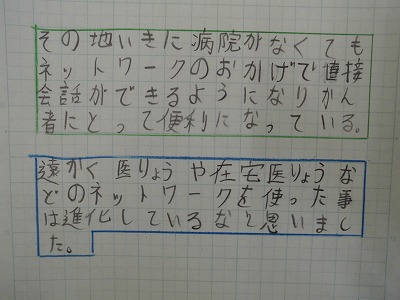 その地いきに病院がなくても
ネットワークのおかげで直接
会話ができるようになりかん
者にとって便利になっている。
遠かく医りょうや在宅医りょうな
どのネットワークを使った事
は進化しているなと思いまし
た。